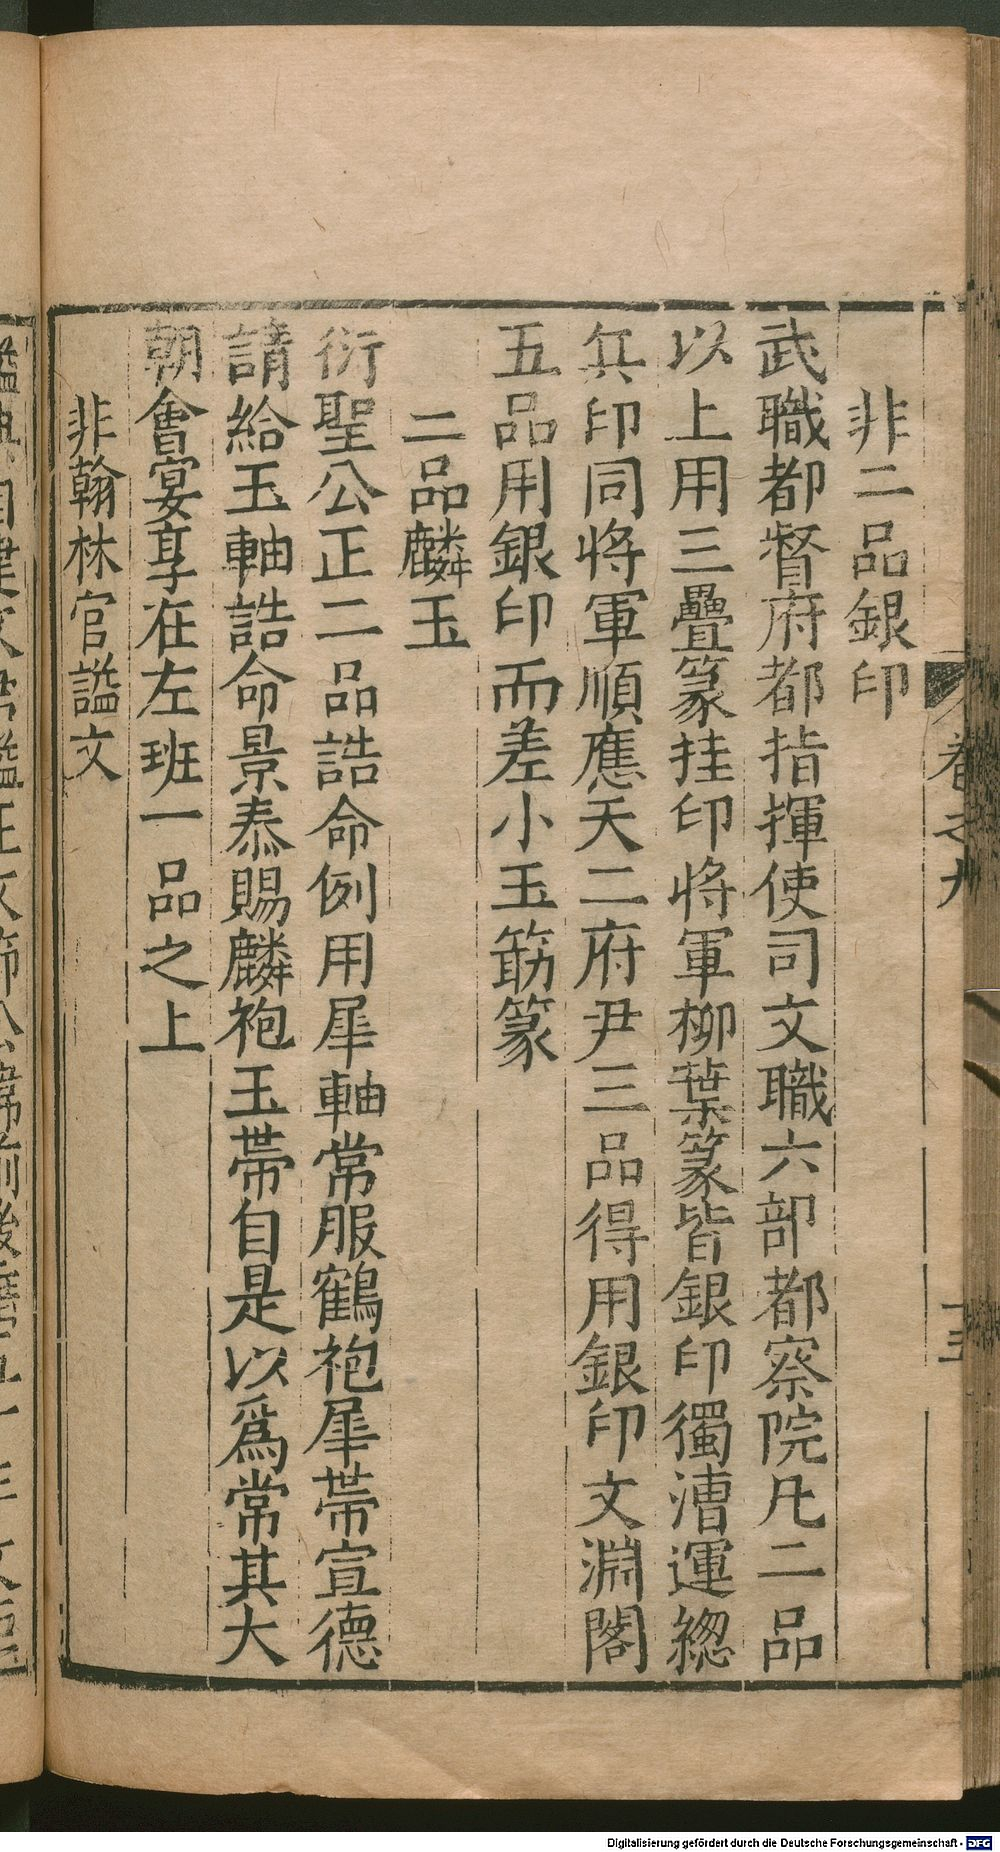 卷之九
非二品銀印
武職都督府都指揮使司文職六部都察院凡二品
以上用三疊篆挂印將軍柳葉篆皆銀印獨漕運總
兵印同將軍順應天二府尹三品得用銀印文淵閣
五品用銀印而差小玉筯篆
二品麟玉
衍聖公正二品誥命例用犀軸常服鶴袍犀帯宣德
請給玉軸誥命景泰賜麟袍玉帯自是以爲常其大
朝會宴享在左班一品之上
非翰林官謚文
Digitalisierung gefördert durch die Deutsche Forschungsgemeinschaft - DFG